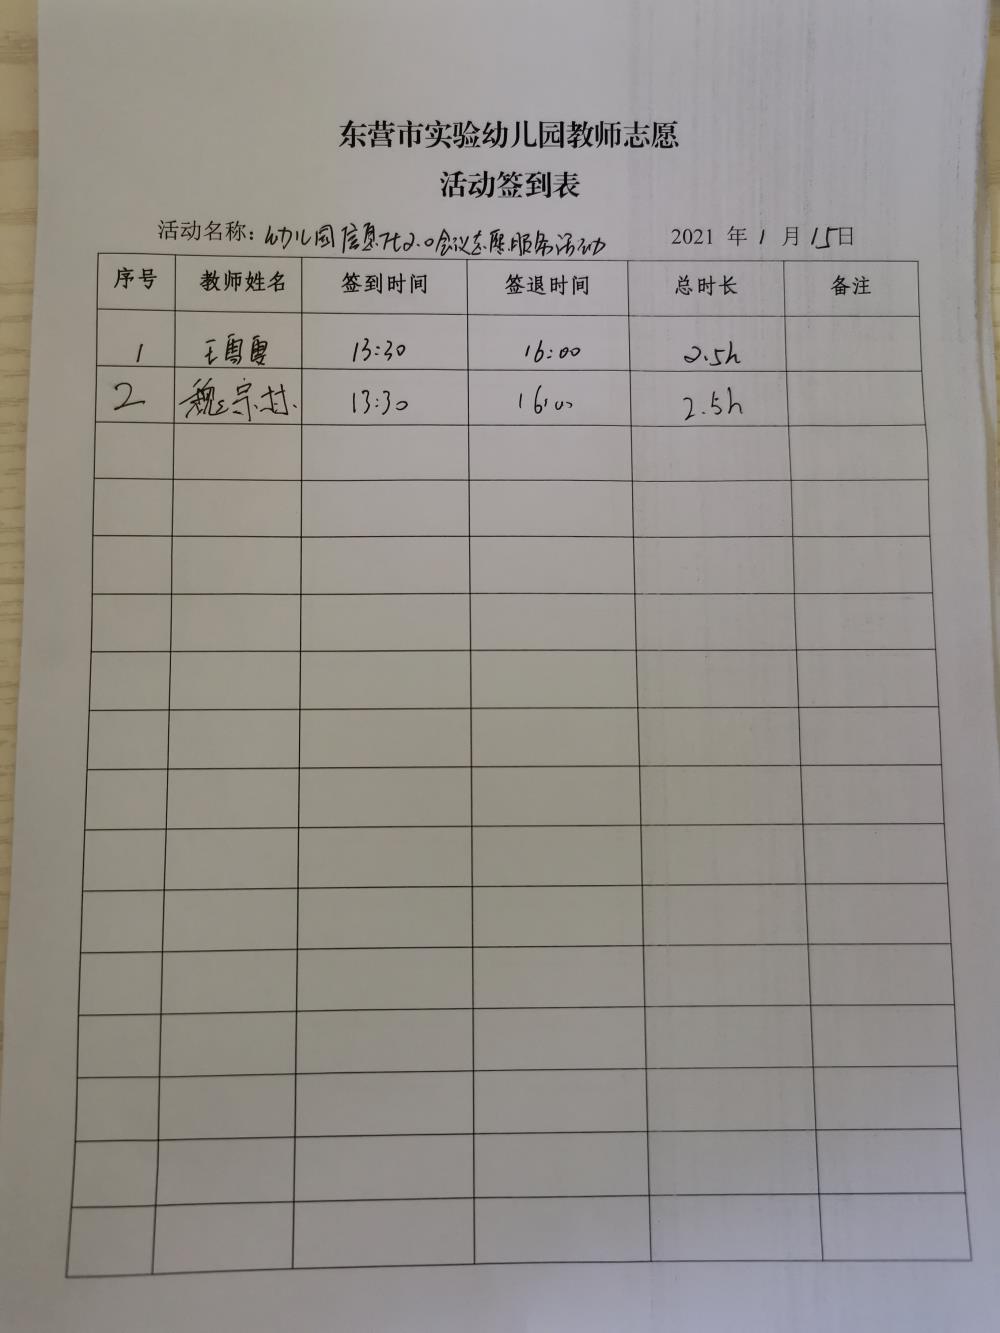 东营市实验幼儿园教师志愿
活动签到表
活动名称：幼儿园信息化2.0会议志愿服务活动 2021 年 1 月 15日
序号 教师姓名 签到时间 签退时间 总时长 备注
1 王雪 13:30 16:00 2.5h
2 魏宗 13:30 16:00 2.5h